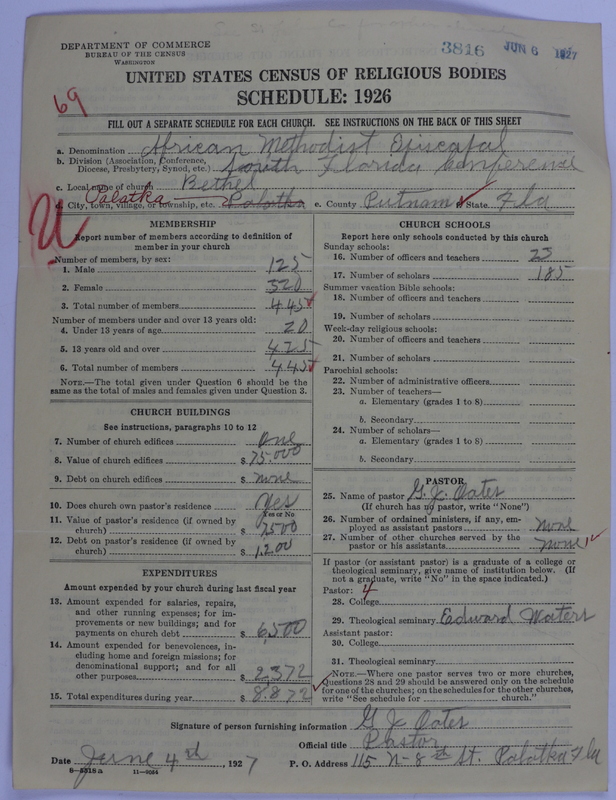 DEPARTMENT OF COMMERCE
BUREAU OF THE CENSUS
WASHINGTON
3816 JUN 6 1927
UNITED STATES CENSUS OF RELIGIOUS BODIES
SCHEDULE: 1926
69
FILL OUT A SEPARATE SCHEDULE FOR EACH CHURCH. SEE INSTRUCTIONS ON THE BACK OF THIS SHEET
a. Denomination African Methodist Episcapal
b. Division (Association, Conference,
Diocese, Presbytery, Synod, etc.) South Florida Conference
c. Local name of church Bethel
d. City, town, village, or township, etc. Palatka Palatka e. County Putnam State Fla
U
MEMBERSHIP
Report number of members according to definition of
member in your church
Number of members, by sex:
1. Male 125
2. Female 320
3. Total number of members 445
Number of members under and over 13 years old:
4. Under 13 years of age 20
5. 13 years old and over 425
6. Total number of members 445
NOTE.—The total given under Question 6 should be
same as the total of males and females given under Question 3.
CHURCH BUILDINGS
See instructions, paragraphs 10 to 12
7. Number of church edifices One
8. Value of church edifices $ 75.000
9. Debt on church edifices $ None
10. Does church own pastor's residence Yes
Yes or No
11. Value of pastor's residence (if owned by
church) $ 7500
12. Debt on pastor's residence (if owned by
church) $ 1,200
EXPENDITURES
Amount expended by your church during last fiscal year
13. Amount expended for salaries, repairs,
and other running expenses; for im-
provements or new buildings; and for
payments on church debt $ 6,500
14. Amount expended for benevolences, in-
cluding home and foreign missions; for
denominational support; and for all
other purposes $ 2372
15. Total expenditures during year $ 8.872
CHURCH SCHOOLS
Report here only schools conducted by this church
Sunday schools:
16. Number of officers and teachers 23
17. Number of scholars 185
Summer vacation Bible schools:
18. Number of officers and teachers
19. Number of scholars
Week-day religious schools:
20. Number of officers and teachers
21. Number of scholars
Parochial schools:
22. Number of administrative officers
23. Number of teachers—
a. Elementary (grades 1 to 8)
b. Secondary
24. Number of scholars—
a. Elementary (grades 1 to 8)
b. Secondary
PASTOR
25. Name of pastor G. J. Oates
(If church has no pastor, write "None")
26. Number of ordained ministers, if any, em-
ployed as assistant pastors None
27. Number of other churches served by the
pastor or his assistants None
If pastor (or assistant pastor) is a graduate of a college or
theological seminary, give name of institution below. (If
not a graduate, write "No" in the space indicated.)
Pastor: 4
28. College
29. Theological seminary Edward Waters
Assistant pastor:
30. College
31. Theological seminary
NOTE.—Where one pastor serves two or more churches,
Questions 28 and 29 should be answered only on the schedule
for one of the churches; on the schedules for the other churches,
write "See schedule for church."
Signature of person furnishing information G J Oates
Official title Pastor
Date June 4th, 1927 P. O. Address 115 N-8th St. Palatka Fla
6—5518a 11—9084